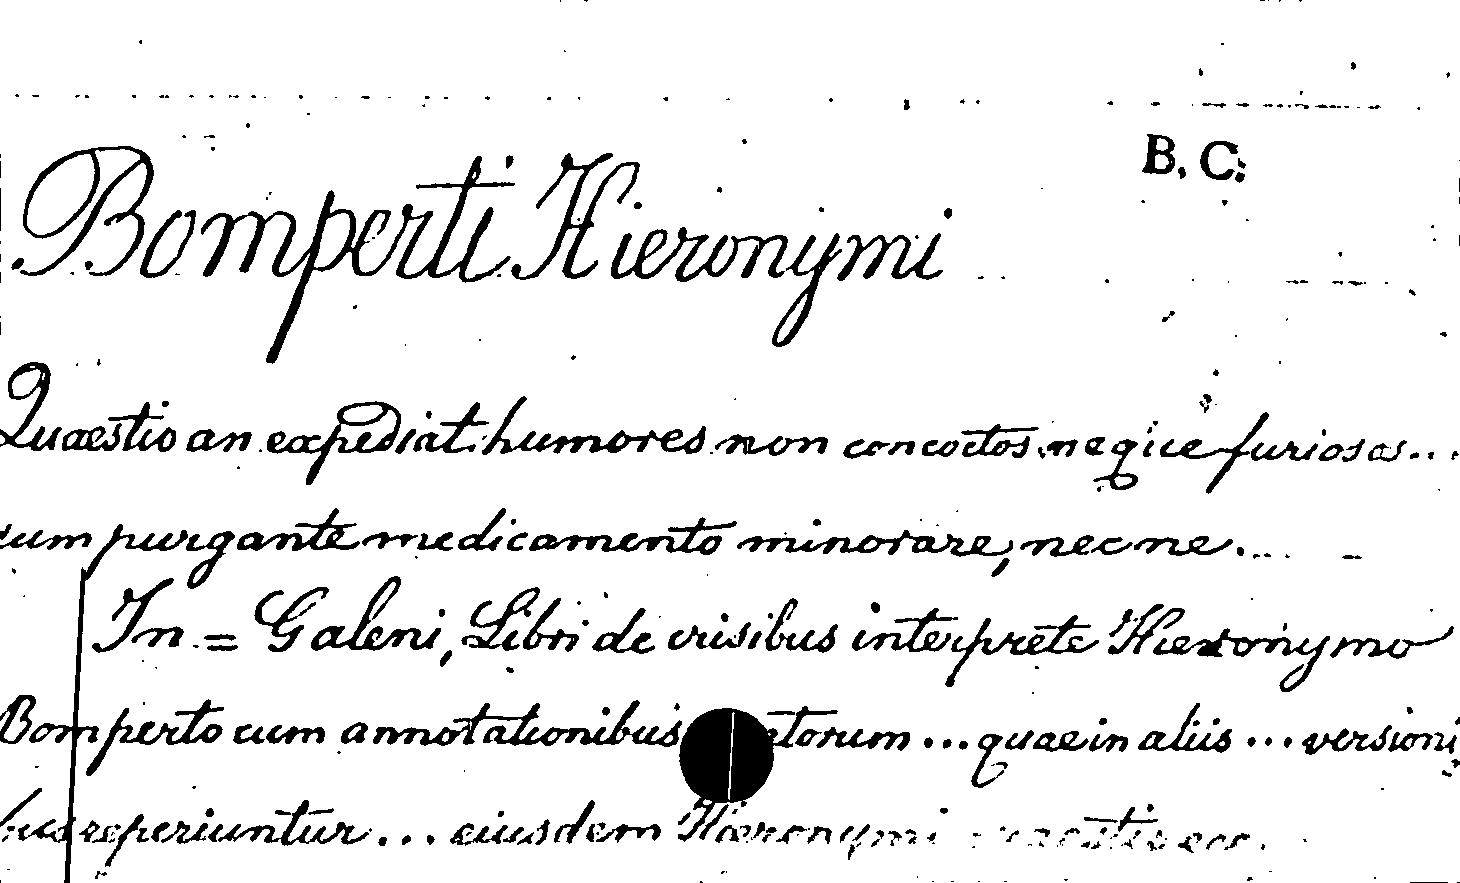 B. C.
Bomperti Hieronymi
Quaestio an expediat humores non concoctos neque furiosos...
cum purgante medicamento minorare, necne...
In = Galeni, Libri de crisibus interprete Hieronymo
Bomperto cum annotationibus ... quae in aliis ... versioni
bus reperiuntur... eiusdem Hieronymi